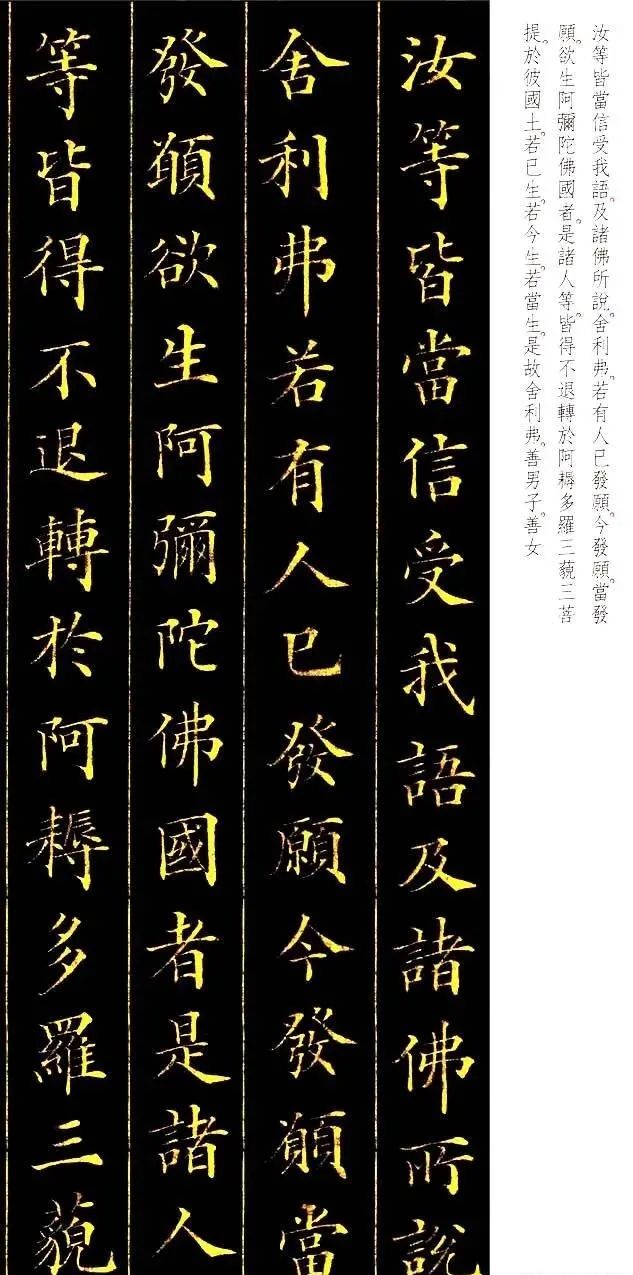 汝等皆當信受我語。及諸佛所說。舍利弗。若有人已發願。今發願。當發
願。欲生阿彌陀佛國者。是諸人等。皆得不退轉於阿耨多羅三藐三菩
提。於彼國土。若已生。若今生。若當生。是故舍利弗。善男子。善女
汝等皆當信受我語及諸佛所說
舍利弗若有人已發願今發願當
發願欲生阿彌陀佛國者是諸人
等皆得不退轉於阿耨多羅三藐